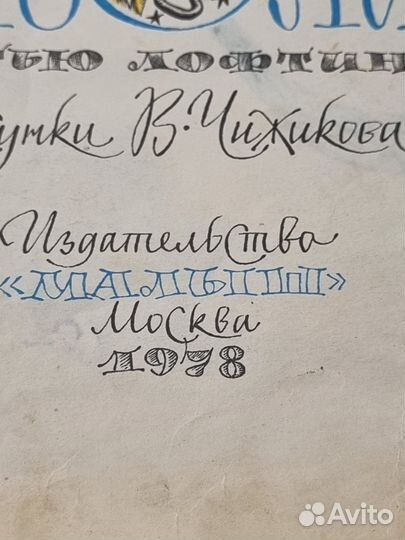 ЬЮ ЛОФТИН
унки В. Чижикова
Издательство
«МАЛЫШ»
Москва
1978
Avito